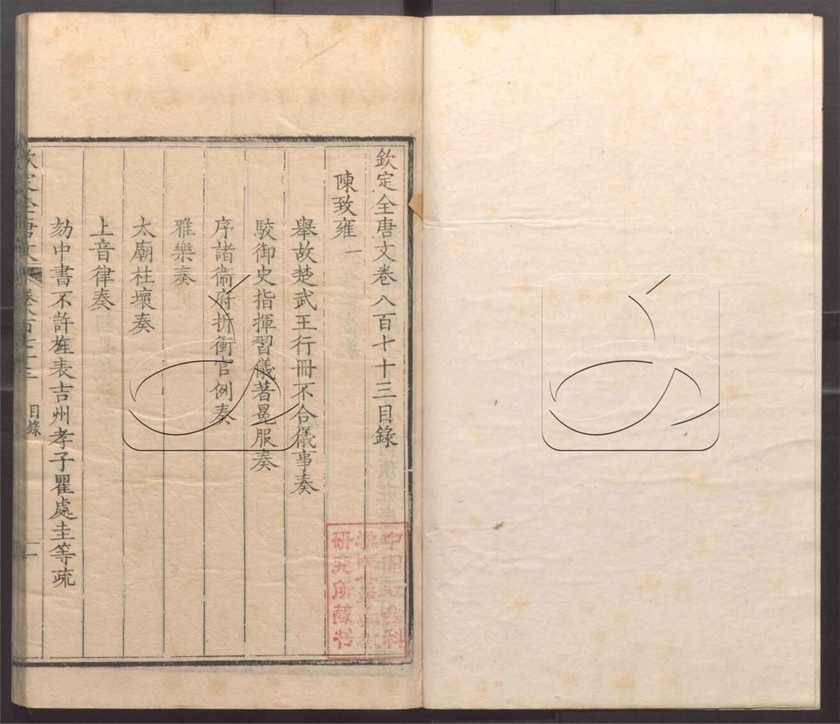 欽定全唐文卷八百七十三目錄
陳致雍一
舉故楚武王行冊不合儀事奏
駮御史指揮習儀著冕服奏
序諸衞府折衝官例奏
雅樂奏
太廟柱壞奏
上音律奏
劾中書不許旌表吉州孝子瞿處圭等疏
欽定全唐文 卷八百七十三 目錄 一